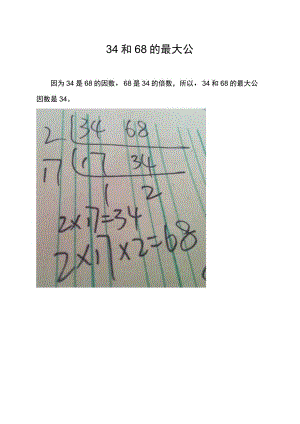 34和68的最大公
因为34是68的因数，68是34的倍数，所以，34和68的最大公
因数是34。
2 34 68
17 17 34
1 2
2×17=34
2×17×2=68